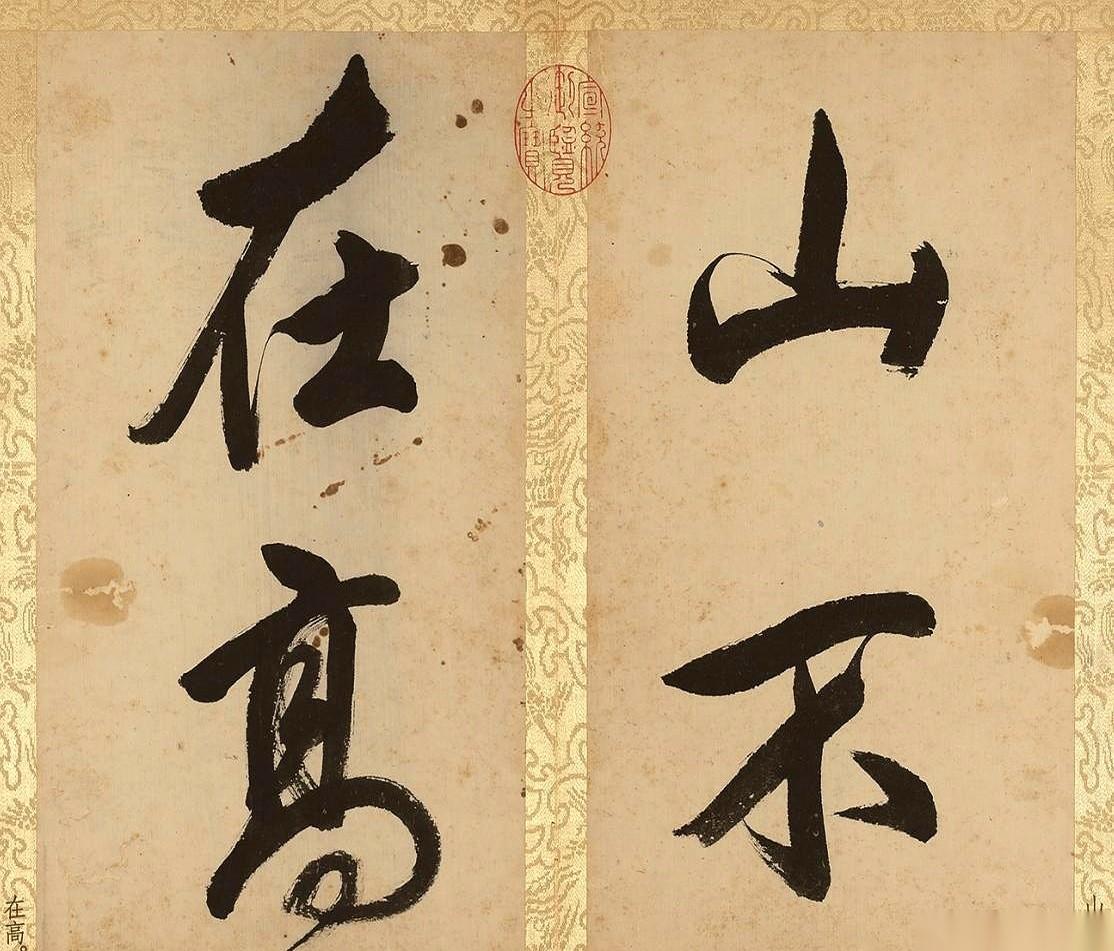 山不
在高
宣統御覽之寶
山
在高。